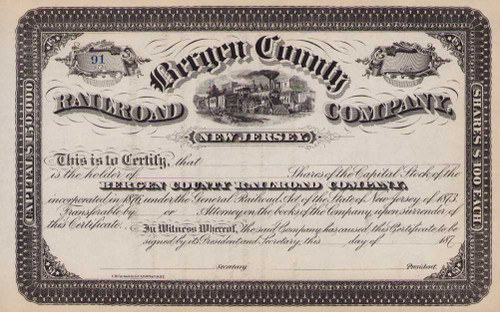 91
Bergen County
RAILROAD COMPANY,
NEW JERSEY
CAPITAL $
SHARES $100 EACH
This is to Certify, that
is the holder of Shares of the Capital Stock of the
BERGEN COUNTY RAILROAD COMPANY,
incorporated in 1876 under the General Railroad Act of the State of New Jersey of 1873.
Transferable by or Attorney on the books of the Company upon surrender of
this Certificate. In Witness Whereof, The said Company has caused this Certificate to be
signed by its President and Secretary, this day of 187
Secretary President